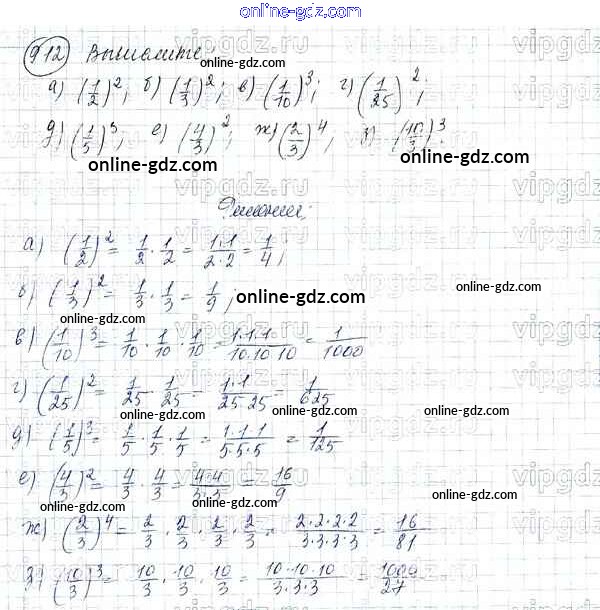 online-gdz.com
912 Вычислите:
а) (1/2)²; б) (1/3)²; в) (1/10)³; г) (1/25)²;
online-gdz.com
д) (1/5)³; е) (4/3)²; ж) (2/3)⁴; з) (10/3)³.
online-gdz.com online-gdz.com
Решение:
а) (1/2)² = 1/2 · 1/2 = 1·1/2·2 = 1/4;
б) (1/3)² = 1/3 · 1/3 = 1/9; online-gdz.com
в) (1/10)³ = 1/10 · 1/10 · 1/10 = 1·1·1/10·10·10 = 1/1000
г) (1/25)² = 1/25 · 1/25 = 1·1/25·25 = 1/625
online-gdz.com online-gdz.com online-gdz.com
д) (1/5)³ = 1/5 · 1/5 · 1/5 = 1·1·1/5·5·5 = 1/125
е) (4/3)² = 4/3 · 4/3 = 4·4/3·3 = 16/9
online-gdz.com online-gdz.com
ж) (2/3)⁴ = 2/3 · 2/3 · 2/3 · 2/3 = 2·2·2·2/3·3·3·3 = 16/81
з) (10/3)³ = 10/3 · 10/3 · 10/3 = 10·10·10/3·3·3 = 1000/27
online-gdz.com